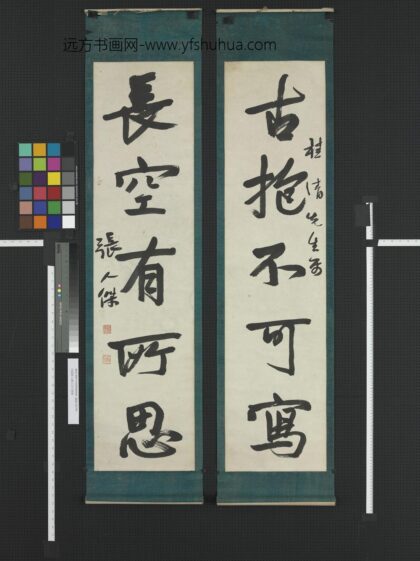 远方书画网-www.yfshuhua.com
古抱不可寫
桂清先生
長空有所思
張人傑